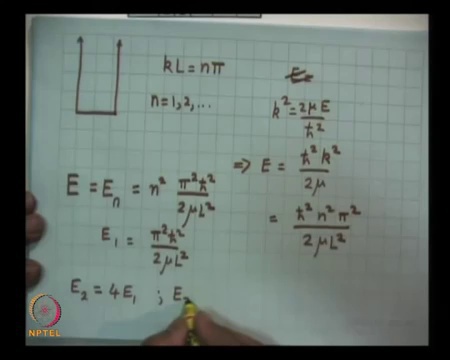 kL = nπ
n = 1, 2, ...
k² = 2μE / ħ²
⇒ E = ħ²k² / 2μ
= ħ²n²π² / 2μL²
E = Eₙ = n² π²ħ² / 2μL²
E₁ = π²ħ² / 2μL²
E₂ = 4E₁ ; E
NPTEL